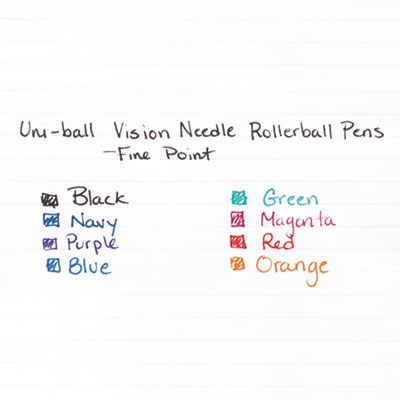 Uni-ball Vision Needle Rollerball Pens
-Fine Point
Black
Navy
Purple
Blue
Green
Magenta
Red
Orange